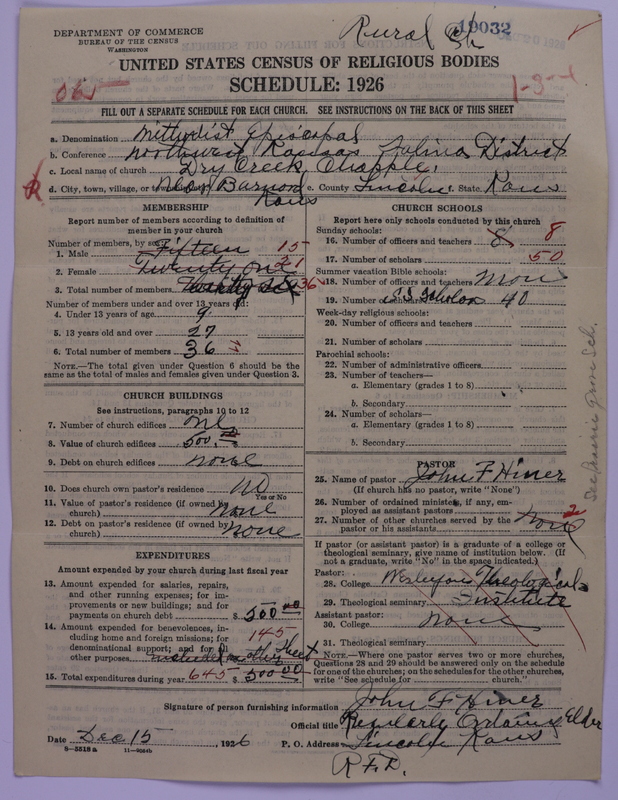 DEPARTMENT OF COMMERCE
BUREAU OF THE CENSUS
WASHINGTON
Rural Ch
19032
UNITED STATES CENSUS OF RELIGIOUS BODIES
SCHEDULE: 1926
1-3-1
FILL OUT A SEPARATE SCHEDULE FOR EACH CHURCH. SEE INSTRUCTIONS ON THE BACK OF THIS SHEET
a. Denomination Methydist Episcopal
b. Conference Northwest Kansas Salina District
c. Local name of church Dry Creek Chapple
d. City, town, village, or township Near Barnard Kans e. County Lincoln State Kans
MEMBERSHIP
Report number of members according to definition of member in your church
Number of members, by sex:
1. Male Fifteen 15
2. Female Twenty one 21
3. Total number of members 36
Number of members under and over 13 years old:
4. Under 13 years of age 9
5. 13 years old and over 27
6. Total number of members 36
NOTE.—The total given under Question 6 should be the same as the total of males and females given under Question 3.
CHURCH BUILDINGS
See instructions, paragraphs 10 to 12
7. Number of church edifices one
8. Value of church edifices 500.00
9. Debt on church edifices none
10. Does church own pastor's residence No
Yes or No
11. Value of pastor's residence (if owned by church) None
12. Debt on pastor's residence (if owned by church) none
EXPENDITURES
Amount expended by your church during last fiscal year
13. Amount expended for salaries, repairs, and other running expenses; for improvements or new buildings; and for payments on church debt $ 500.00
14. Amount expended for benevolences, including home and foreign missions; for denominational support; and for all other purposes 145 included on other sheet
15. Total expenditures during year 645 $ 500.00
CHURCH SCHOOLS
Report here only schools conducted by this church
Sunday schools:
16. Number of officers and teachers 8 8
17. Number of scholars 50
Summer vacation Bible schools:
18. Number of officers and teachers None
19. Number of scholars S S Scholars 40
Week-day religious schools:
20. Number of officers and teachers
21. Number of scholars
Parochial schools:
22. Number of administrative officers
23. Number of teachers—
a. Elementary (grades 1 to 8)
b. Secondary
24. Number of scholars—
a. Elementary (grades 1 to 8)
b. Secondary
PASTOR
25. Name of pastor John F Hiner
(If church has no pastor, write "None")
26. Number of ordained ministers, if any, employed as assistant pastors
27. Number of other churches served by the pastor or his assistants none 2
If pastor (or assistant pastor) is a graduate of a college or theological seminary, give name of institution below. (If not a graduate, write "No" in the space indicated.)
Pastor:
28. College Wesleyan Theological
29. Theological seminary Institute
Assistant pastor:
30. College none
31. Theological seminary
NOTE.—Where one pastor serves two or more churches, Questions 28 and 29 should be answered only on the schedule for one of the churches; on the schedules for the other churches, write "See schedule for church."
Signature of person furnishing information John F Hiner
Official title Regularly Ordaing Elder
Date Dec 15, 1926 P. O. Address Lincoln Kans
8-5518 a
R F D.